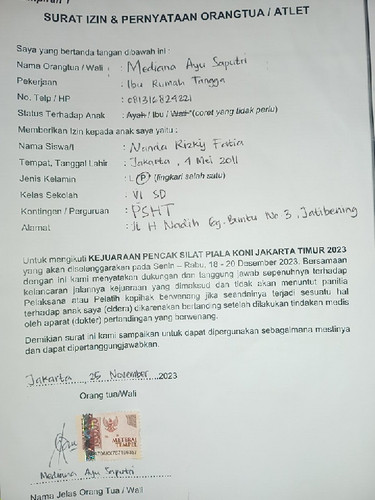 SURAT IZIN & PERNYATAAN ORANGTUA / ATLET
Saya yang bertanda tangan dibawah ini :
Nama Orangtua / Wali : Mediana Ayu Saputri
Pekerjaan : Ibu Rumah Tangga
No. Telp / HP : 081316824221
Status Terhadap Anak : Ayah / Ibu / Wali *(coret yang tidak perlu)
Memberikan Izin kepada anak saya yaitu :
Nama Siswa/i : Nanda Rizkiy Fatia
Tempat, Tanggal Lahir : Jakarta, 4 Mei 2011
Jenis Kelamin : L / P *(lingkari salah satu)
Kelas Sekolah : VI SD
Kontingen / Perguruan : PSHT
Alamat : Jl H Nadih Gg. Buntu No 3, Jatibening
Untuk mengikuti KEJUARAAN PENCAK SILAT PIALA KONI JAKARTA TIMUR 2023
yang akan diselenggarakan pada Senin – Rabu, 18 - 20 Desember 2023. Bersamaan
dengan ini kami menyatakan dukungan dan tanggung jawab sepenuhnya terhadap
kelancaran jalannya kejuaraan yang dimaksud dan tidak akan menuntut panitia
Pelaksana atau Pelatih kepihak berwenang jika seandainya terjadi sesuatu hal
terhadap anak saya (cidera) dikarenakan bertanding setelah dilakukan tindakan medis
oleh aparat (dokter) pertandingan yang berwenang.
Demikian surat ini kami sampaikan untuk dapat dipergunakan sebagaimana mestinya
dan dapat dipertanggungjawabkan.
Jakarta, 25 November 2023
Orang tua/Wali
METERAI
TEMPEL
Mediana Ayu Saputri
Nama Jelas Orang Tua / Wali